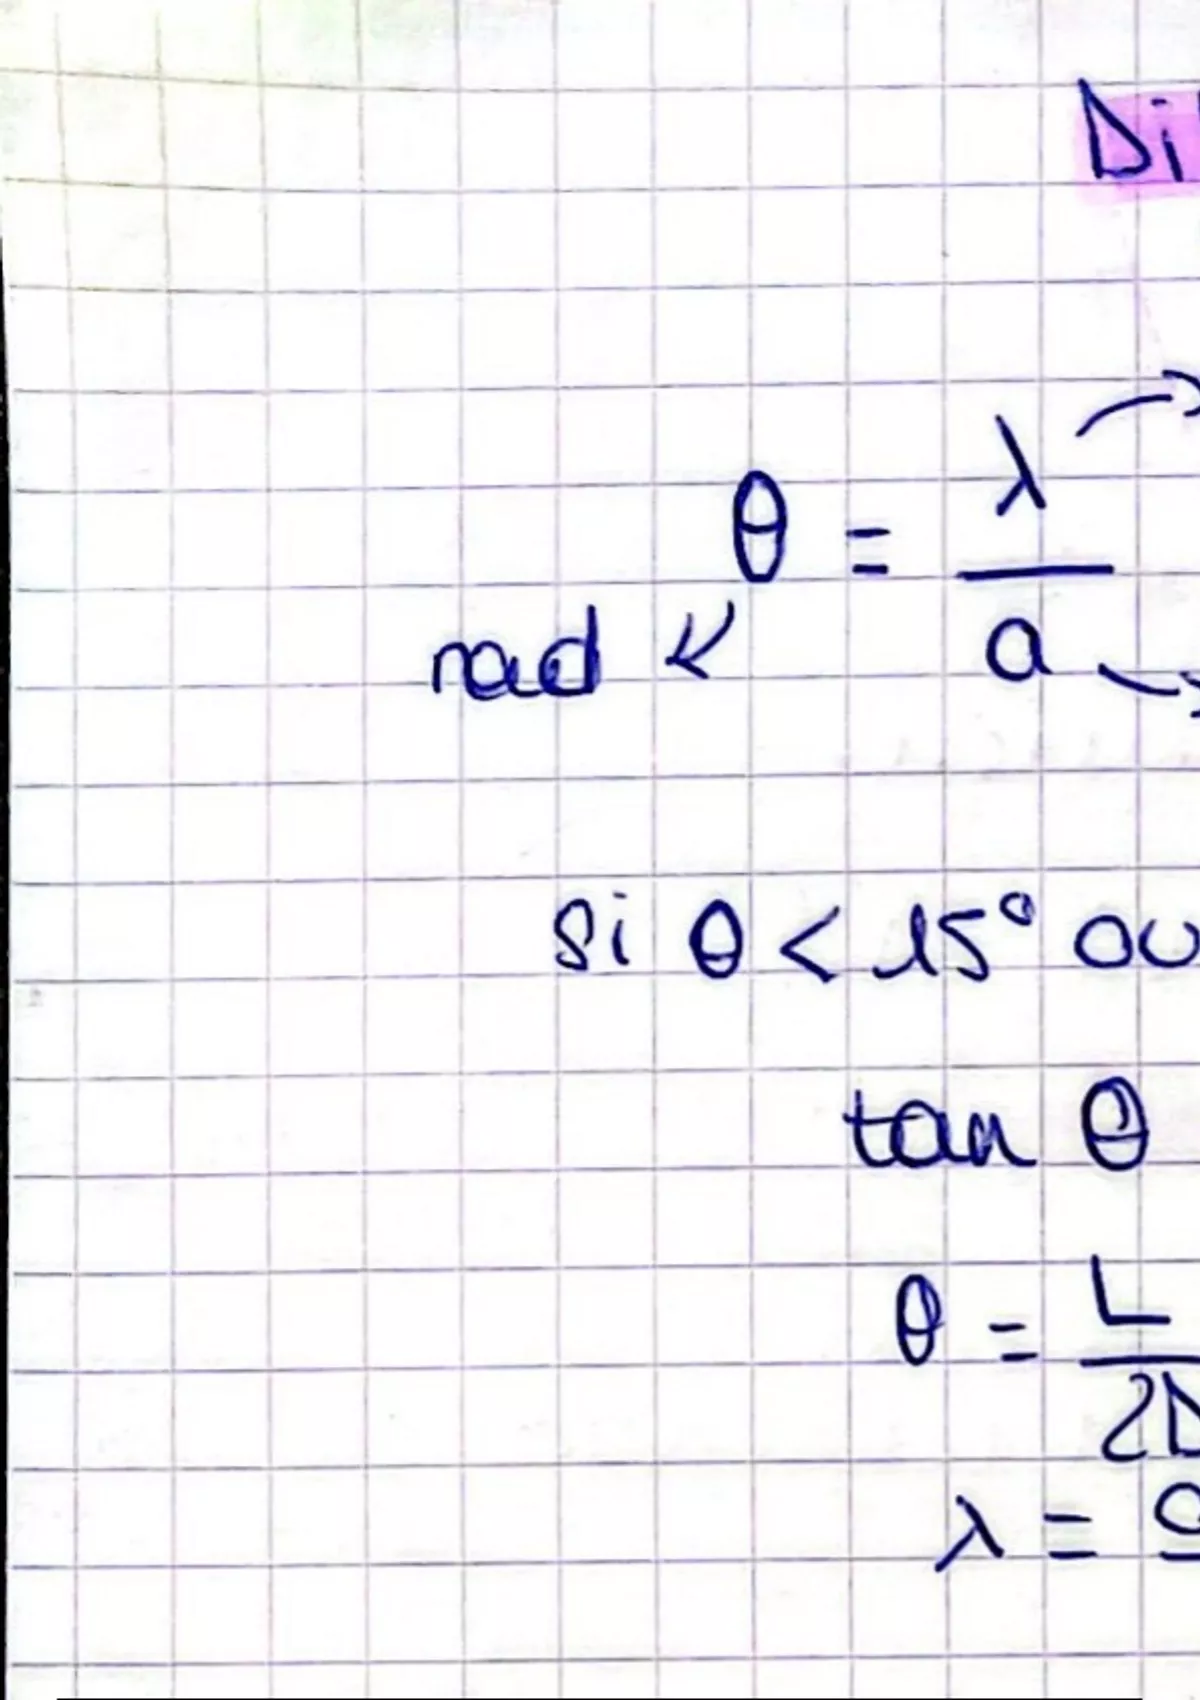 Di
θ = λ / a
rad
si θ < 15° ou
tan θ
θ = L / 2D
λ =